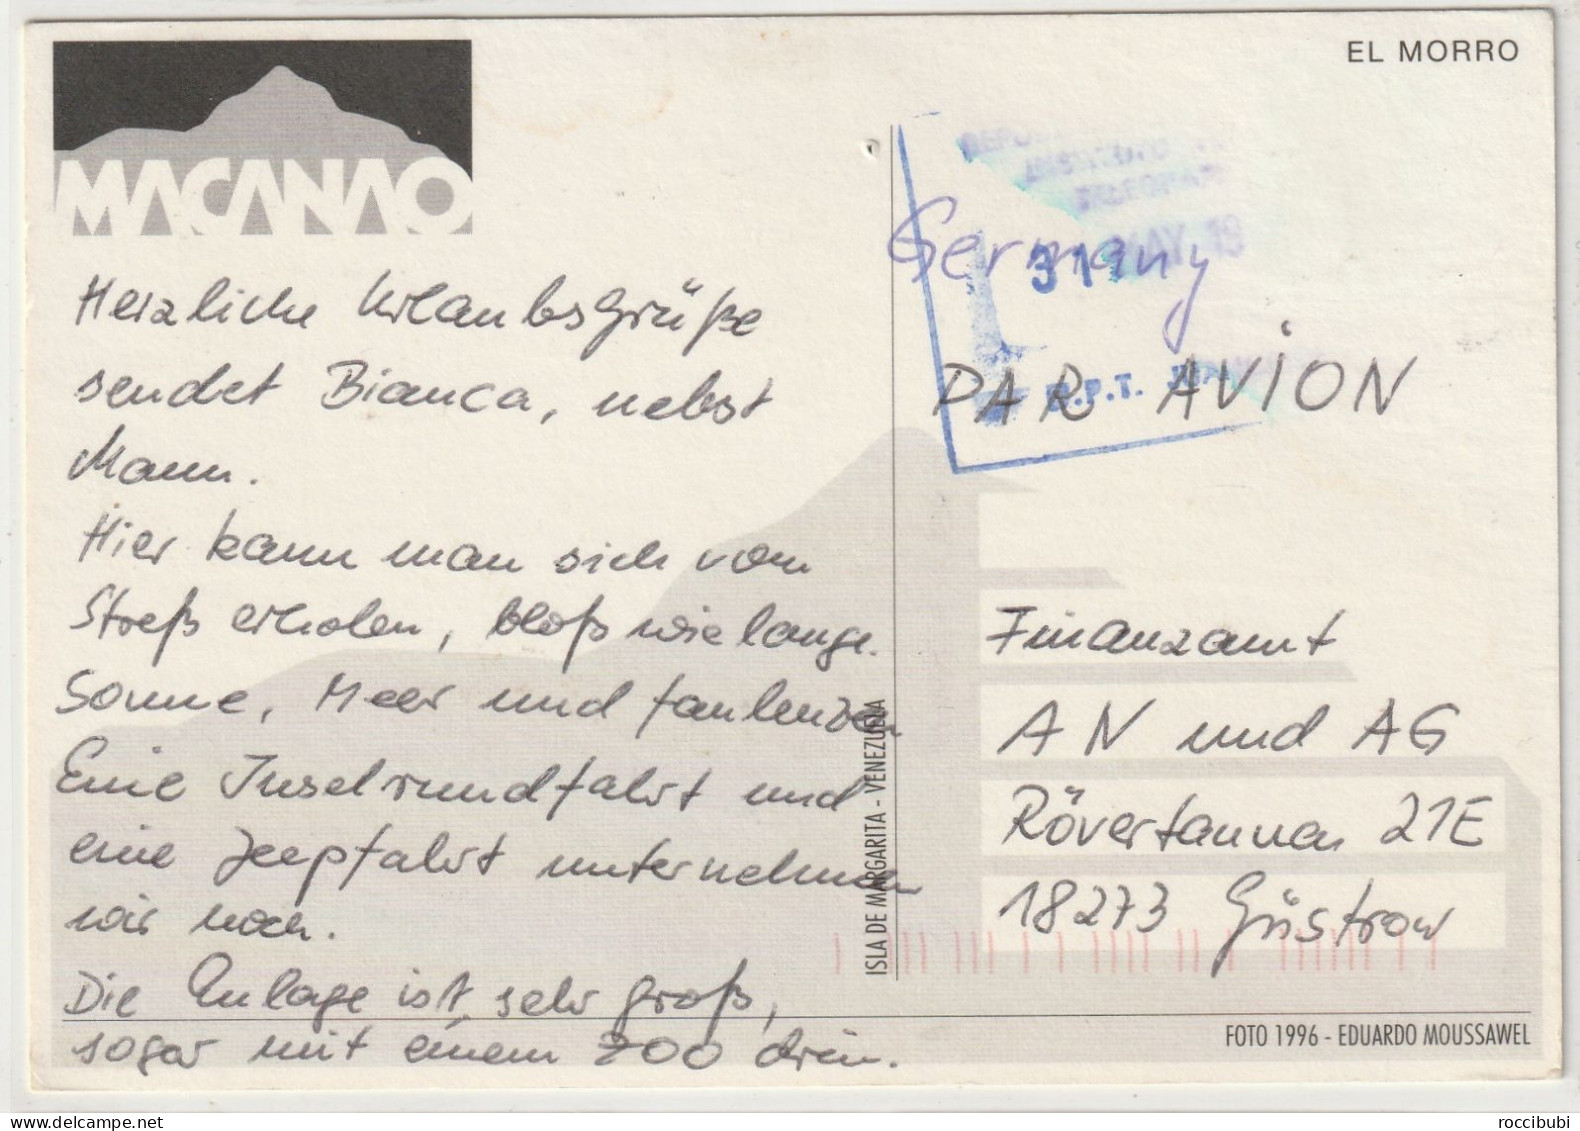 MACANAO
EL MORRO
Herzliche Urlaubsgrüße
sendet Bianca, nebst
Mann.
Hier kann man sich vom
Streß erholen, bloß wie lange.
Sonne, Meer und faulenzen
Eine Inselrundfahrt und
eine Jeepfahrt unternehmen
wir noch.
Die Anlage ist sehr groß,
sogar mit einem ZOO drin.
ISLA DE MARGARITA - VENEZUELA
Germany
31 MAY 19
PAR AVION
Finanzamt
AN und AG
Rövertannen 21E
18273 Güstrow
FOTO 1996 - EDUARDO MOUSSAWEL
www.delcampe.net
roccibubi